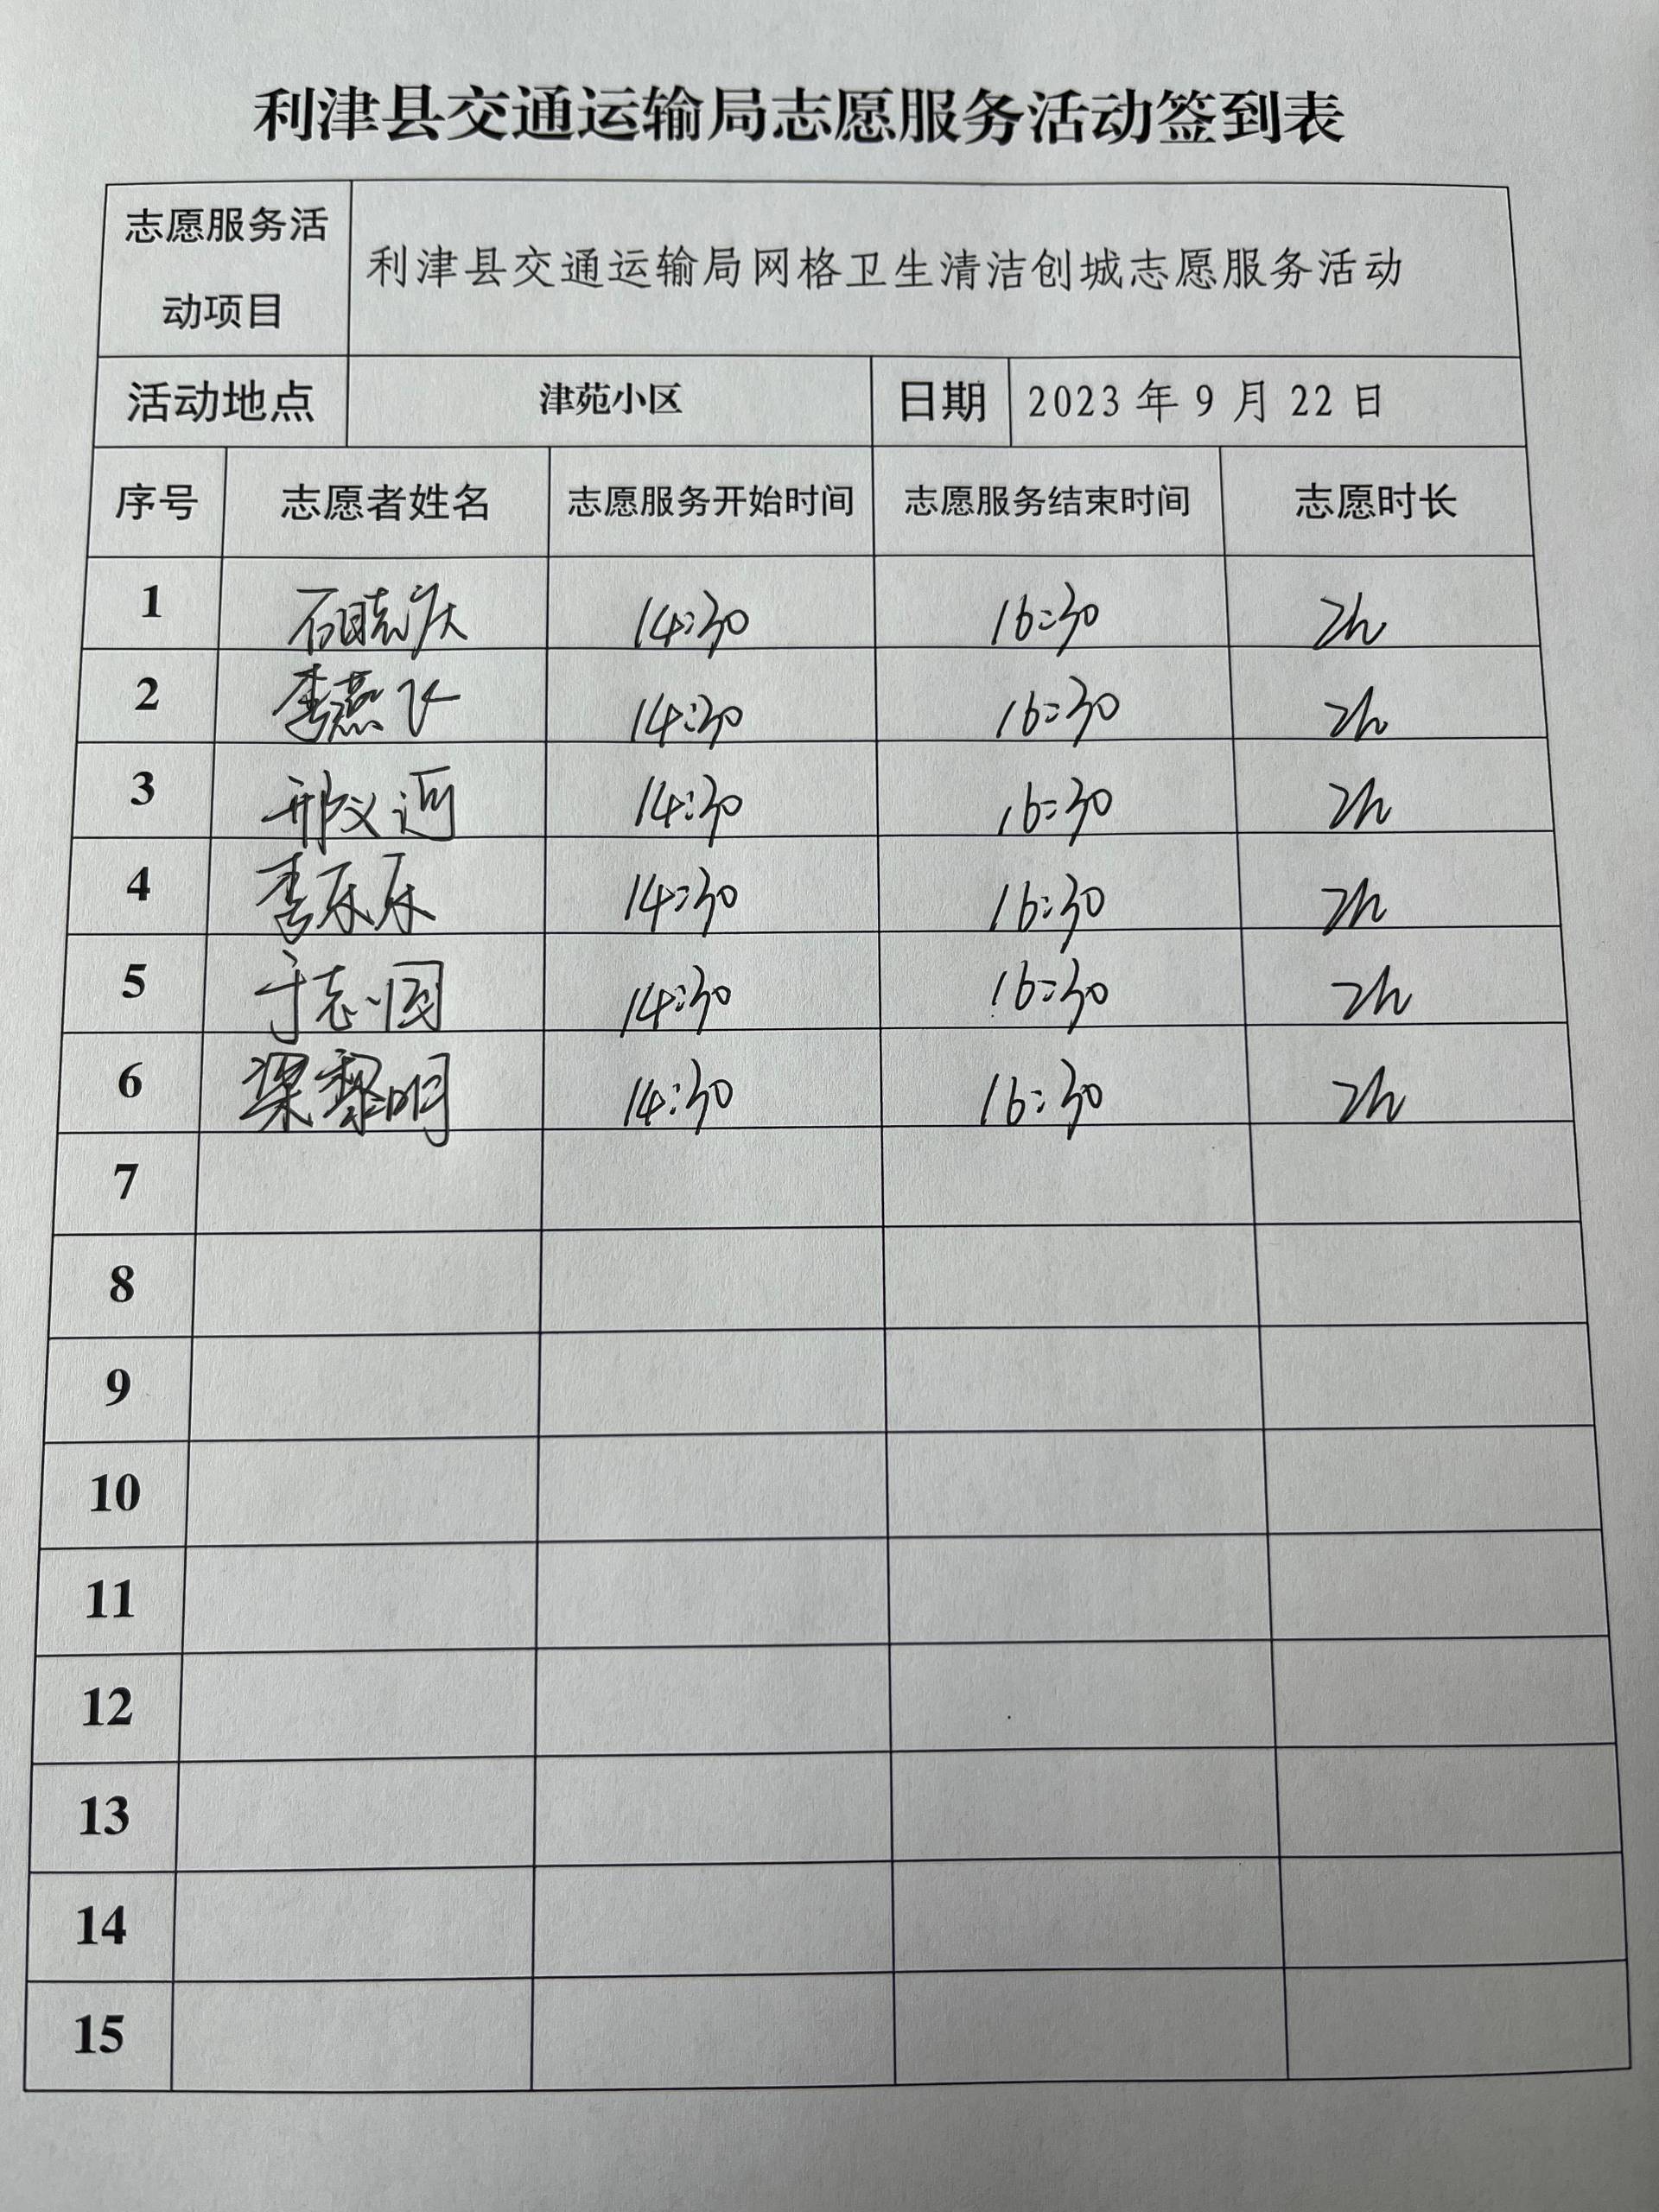 利津县交通运输局志愿服务活动签到表
志愿服务活
动项目
利津县交通运输局网格卫生清洁创城志愿服务活动
活动地点 津苑小区 日期 2023 年 9 月 22 日
序号 志愿者姓名 志愿服务开始时间 志愿服务结束时间 志愿时长
1 石晓庆 14:30 16:30 2h
2 李燕飞 14:30 16:30 2h
3 邢义 14:30 16:30 2h
4 李乐乐 14:30 16:30 2h
5 于志国 14:30 16:30 2h
6 梁黎明 14:30 16:30 2h
7
8
9
10
11
12
13
14
15